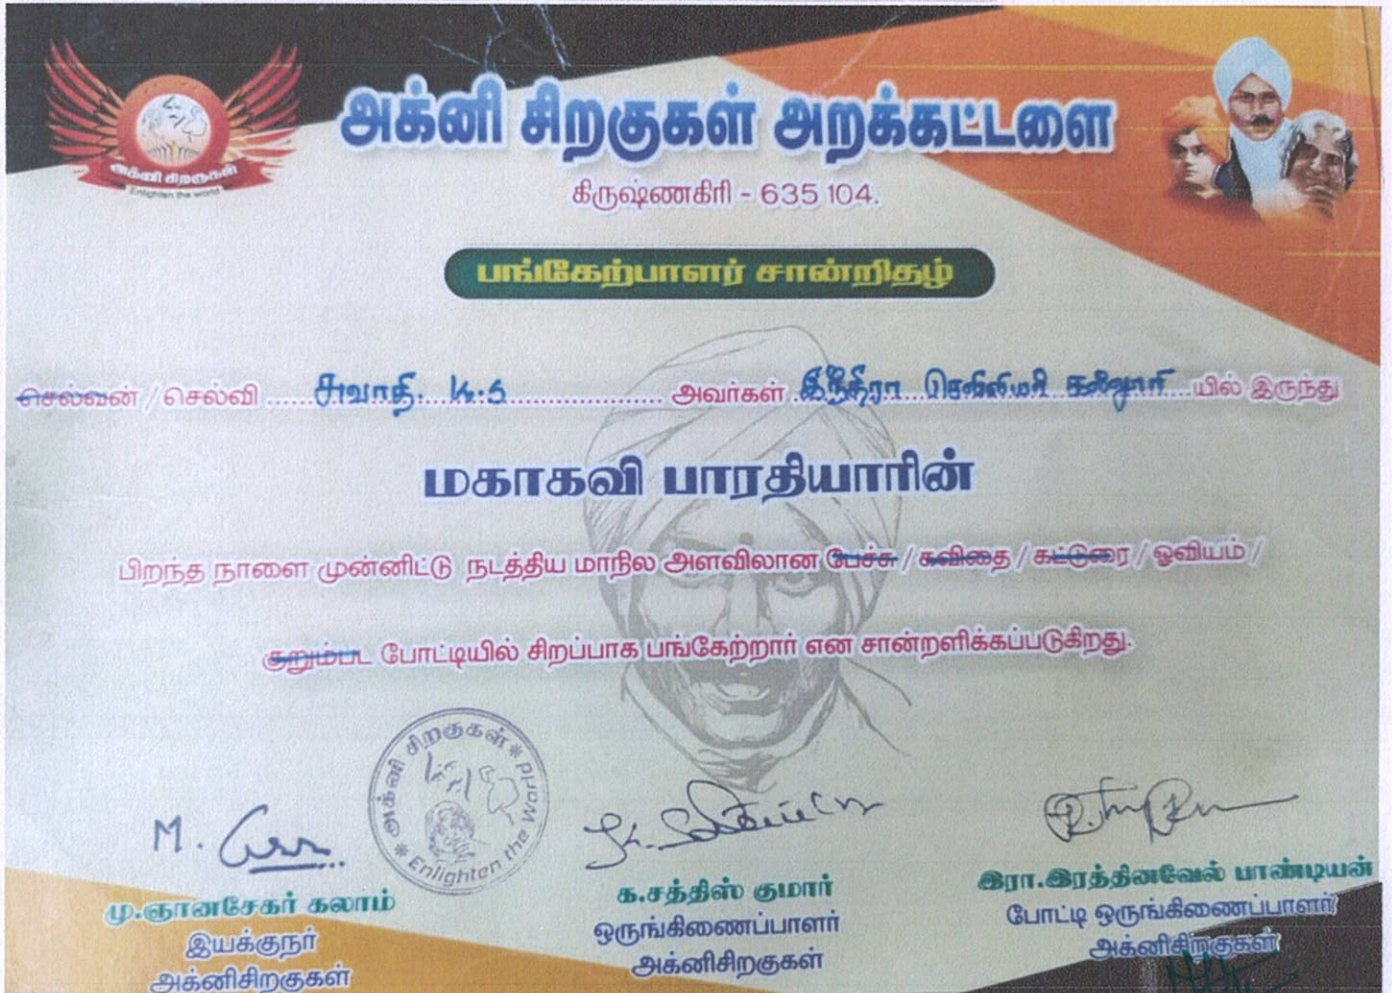 அக்னி சிறகுகள் அறக்கட்டளை
அக்னி சிறகுகள்
Enlighten the world
கிருஷ்ணகிரி - 635 104.
பங்கேற்பாளர் சான்றிதழ்
செல்வன் / செல்வி ...... சுவாதி. K.S ...... அவர்கள் இந்திரா செவிலியர் கல்லூரி ...யில் இருந்து
மகாகவி பாரதியாரின்
பிறந்த நாளை முன்னிட்டு நடத்திய மாநில அளவிலான பேச்சு / கவிதை / கட்டுரை / ஓவியம் /
குறும்பட போட்டியில் சிறப்பாக பங்கேற்றார் என சான்றளிக்கப்படுகிறது.
அக்னி சிறகுகள் * Enlighten the World *
மு.ஞானசேகர் கலாம்
இயக்குநர்
அக்னிசிறகுகள்
க.சத்திஸ் குமார்
ஒருங்கிணைப்பாளர்
அக்னிசிறகுகள்
இரா.இரத்தினவேல் பாண்டியன்
போட்டி ஒருங்கிணைப்பாளர்
அக்னிசிறகுகள்